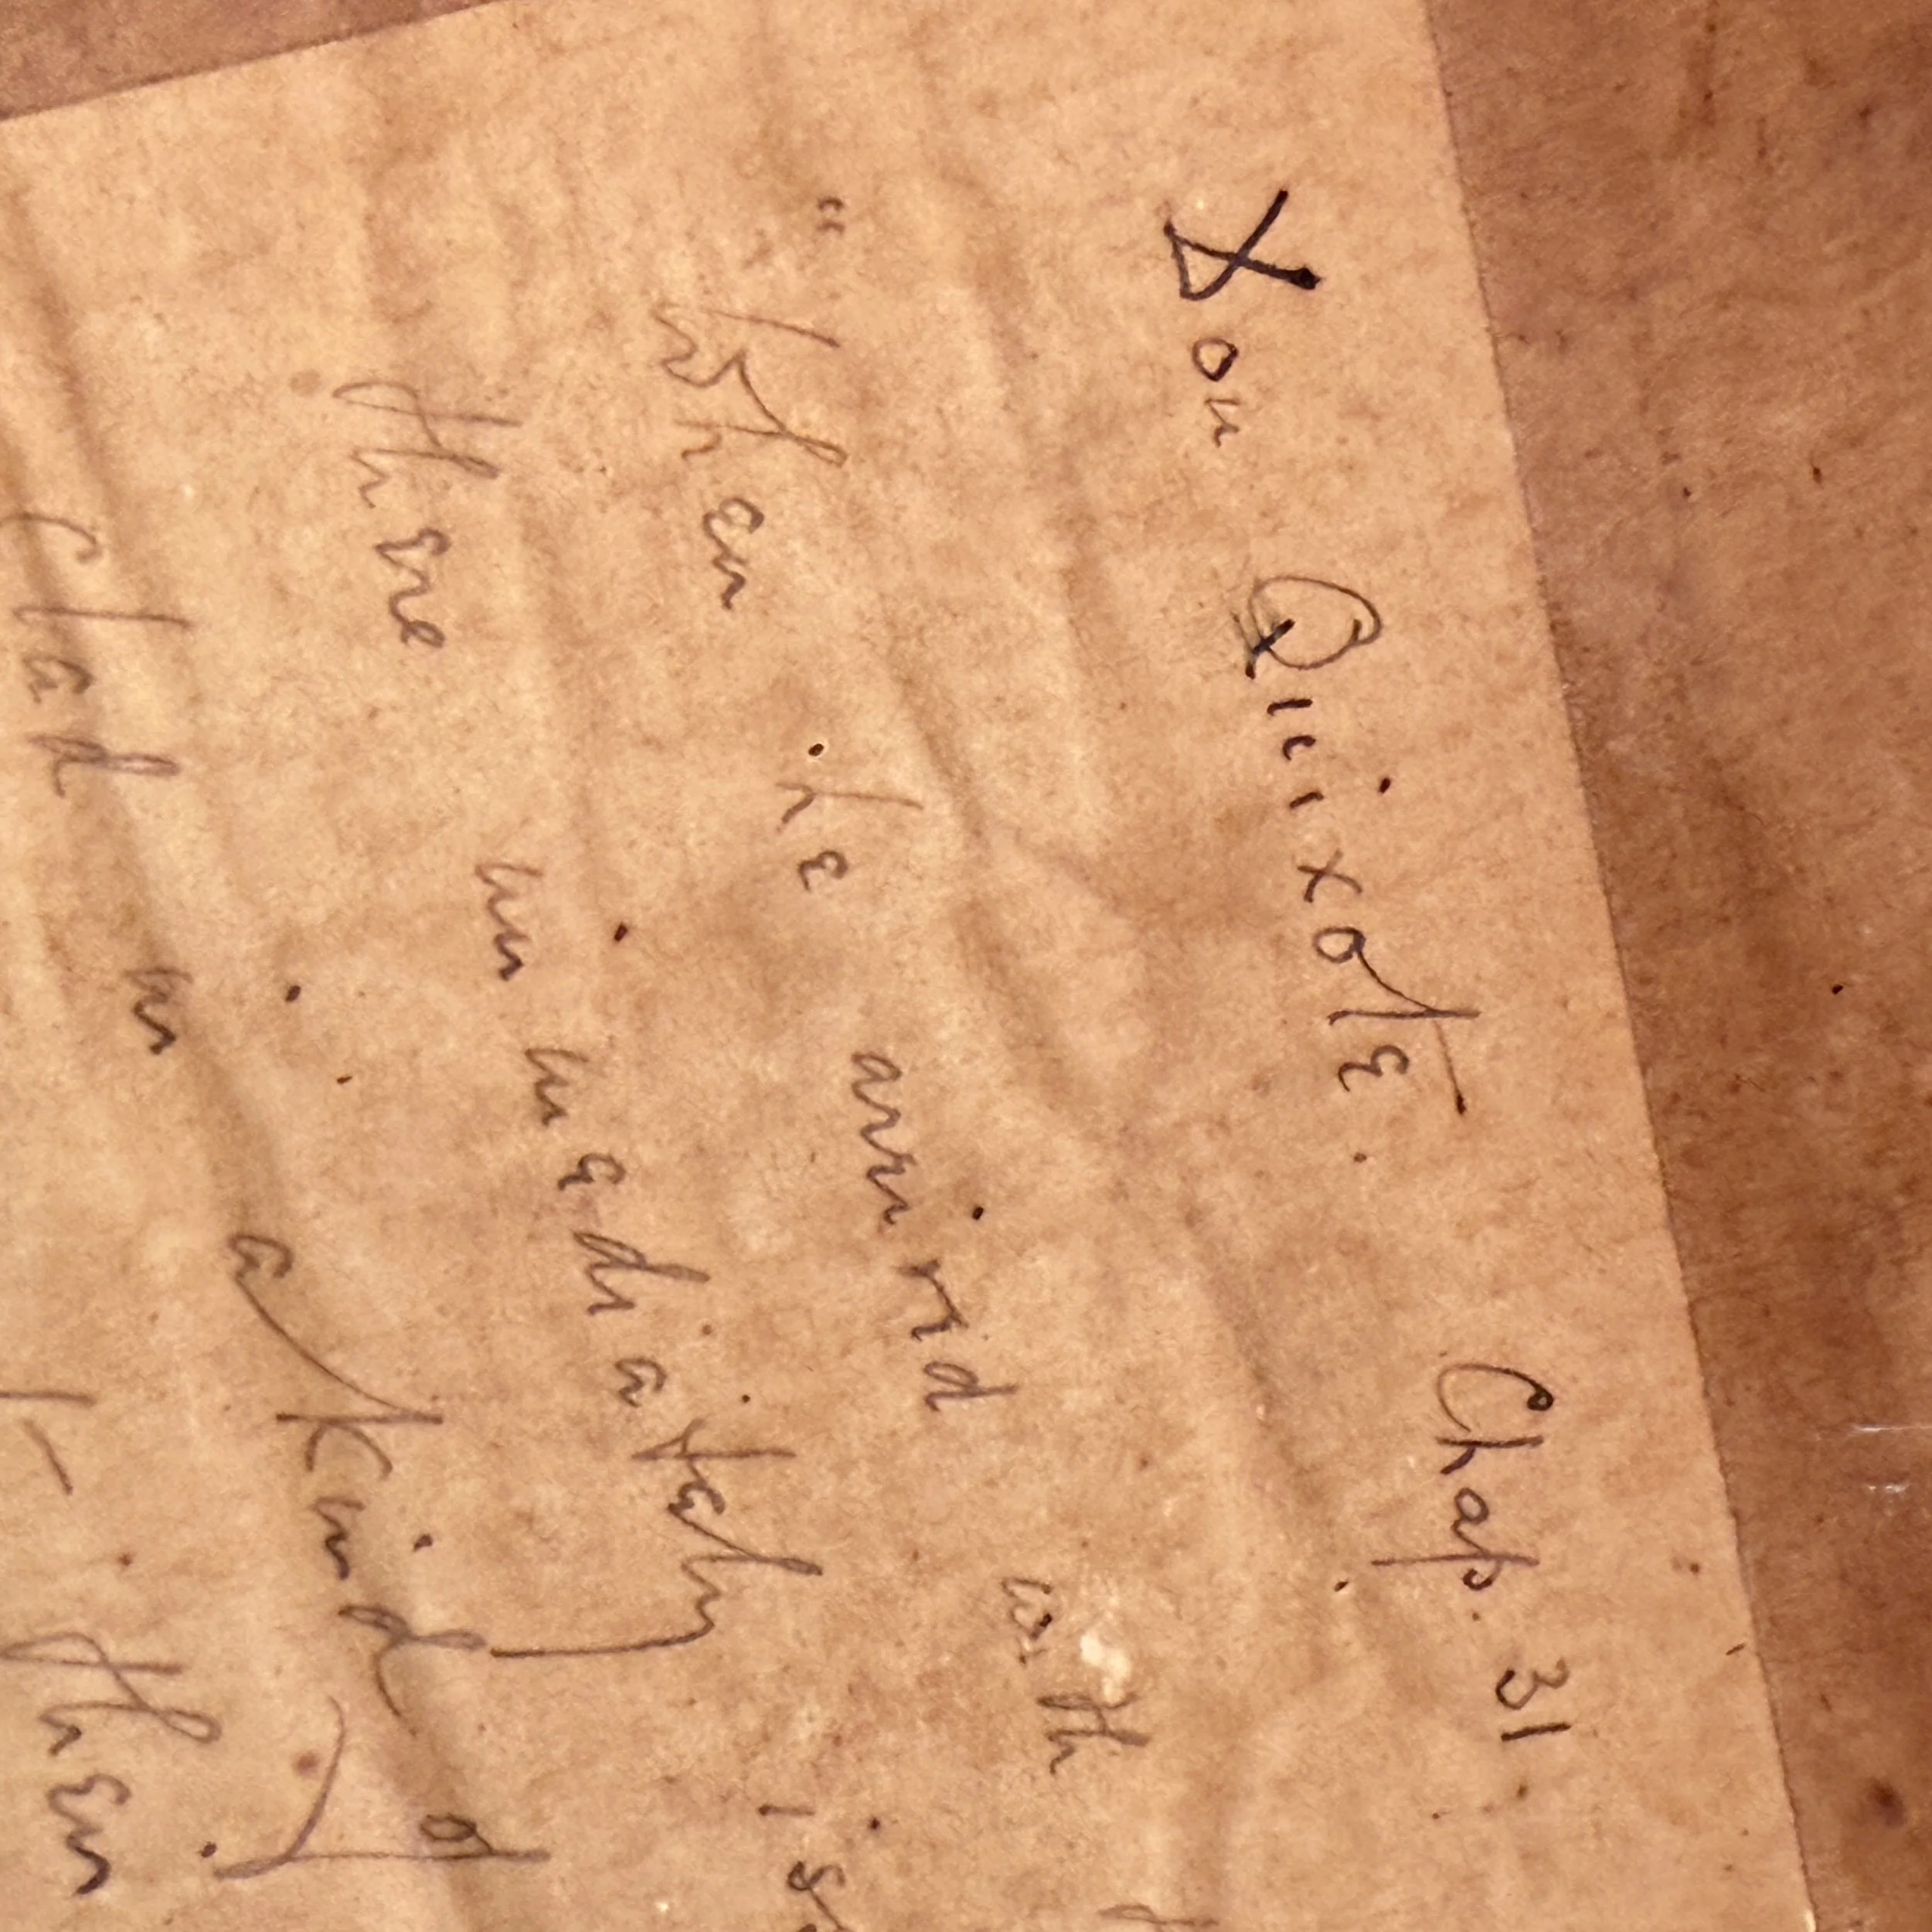 Don Quixote. Chap. 31.
" When he arrived with
there immediately is
clad in a kind of
then